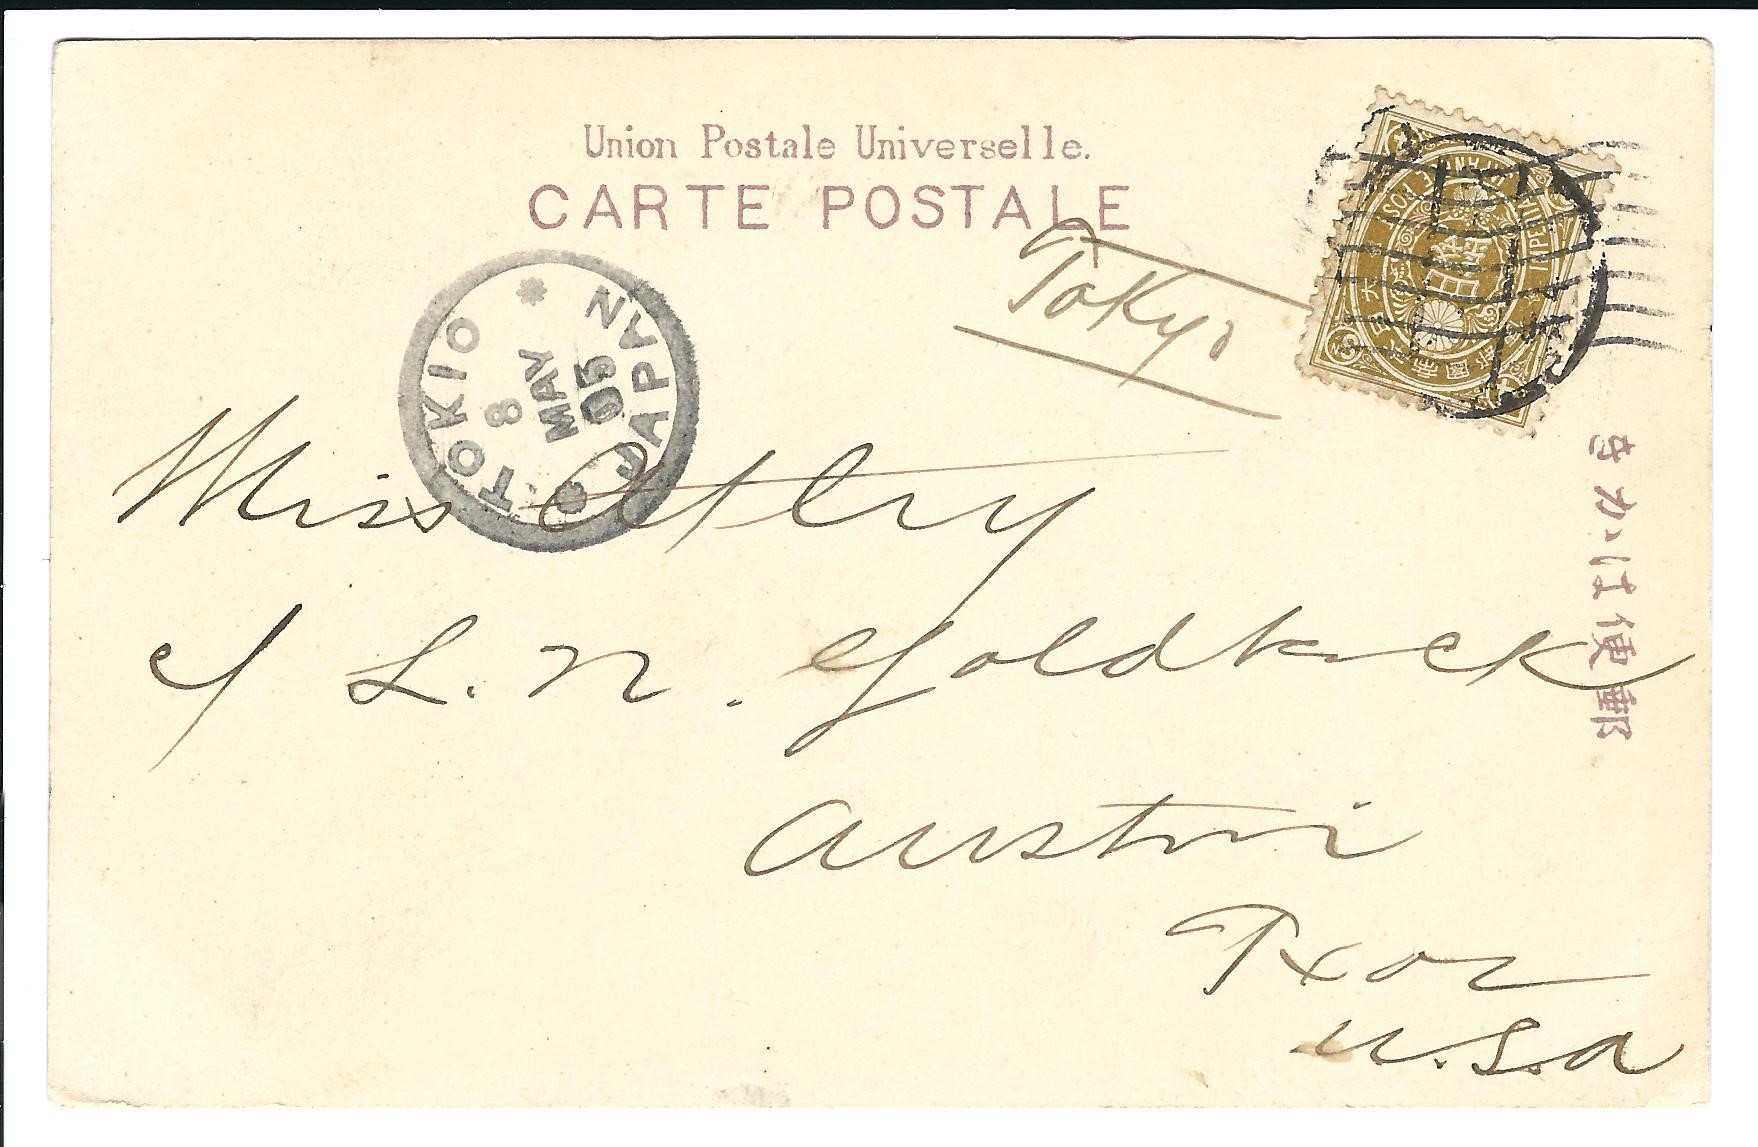 Union Postale Universelle.
CARTE POSTALE
Tokyo
TOKIO JAPAN
8
MAY
05
Miss Atlry
c/ L. N. Goldbeck
Austin
Texas
U.S.A
きかは便郵